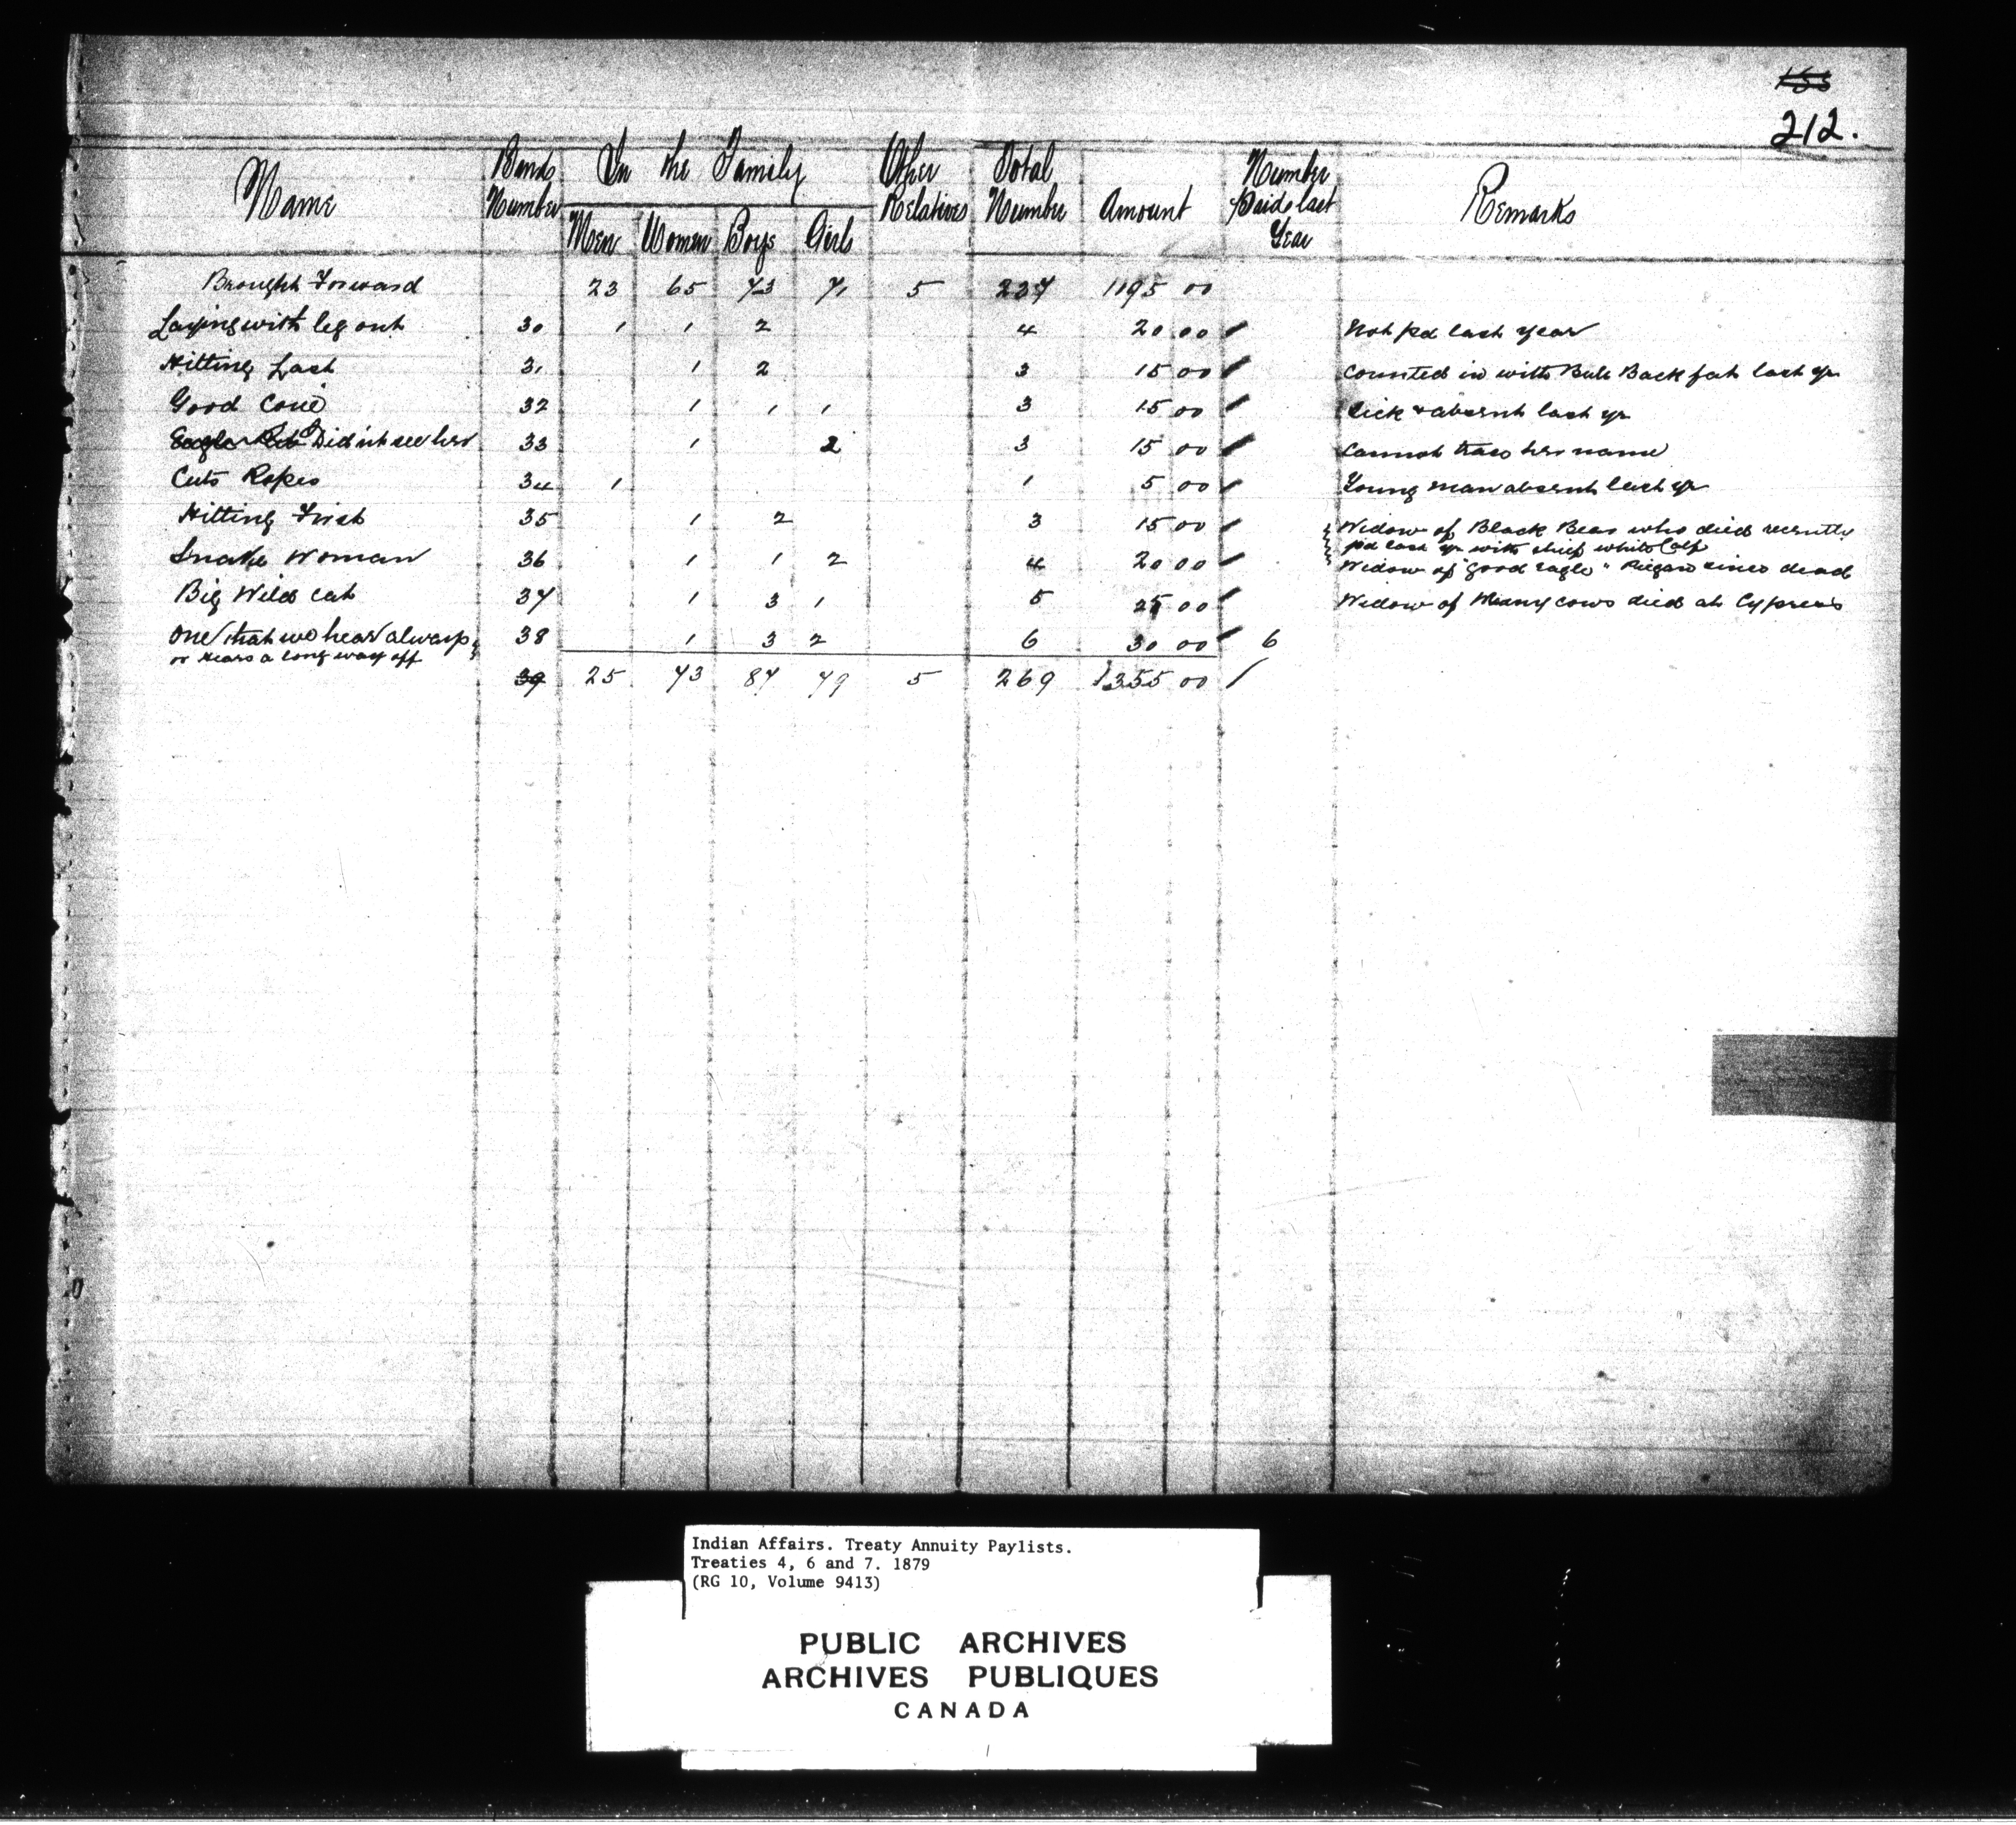 155
212.
Name Bands Number In the Family Men Women Boys Girls Other Relatives Total Number Amount Number Paid last Year Remarks
Brought Forward 23 65 73 71 5 237 1195 00
Laying with leg out 30 1 1 2 4 20 00 Not pd last year
Hitting Last 31 1 2 3 15 00 Counted in with Bull Back fat last yr
Good 32 1 1 1 3 15 00 Sick & absent last yr
Eagle Rib Didn't see her 33 1 2 3 15 00 Cannot trace her name
Cuts Ropes 34 1 1 5 00 Young man absent last yr
Hitting First 35 1 2 3 15 00 Widow of Black Bear who died recently
pd last yr with chief White Calf
Snake Woman 36 1 1 2 4 20 00 Widow of "Good Eagle" Piegan since dead
Big Wild Cat 37 1 3 1 5 25 00 Widow of Many cows died at Cypress
One that we hear always 38 1 3 2 6 30 00 6
or Hears a long way off
39 25 73 87 79 5 269 1355 00
Indian Affairs. Treaty Annuity Paylists.
Treaties 4, 6 and 7. 1879
(RG 10, Volume 9413)
PUBLIC ARCHIVES
ARCHIVES PUBLIQUES
CANADA